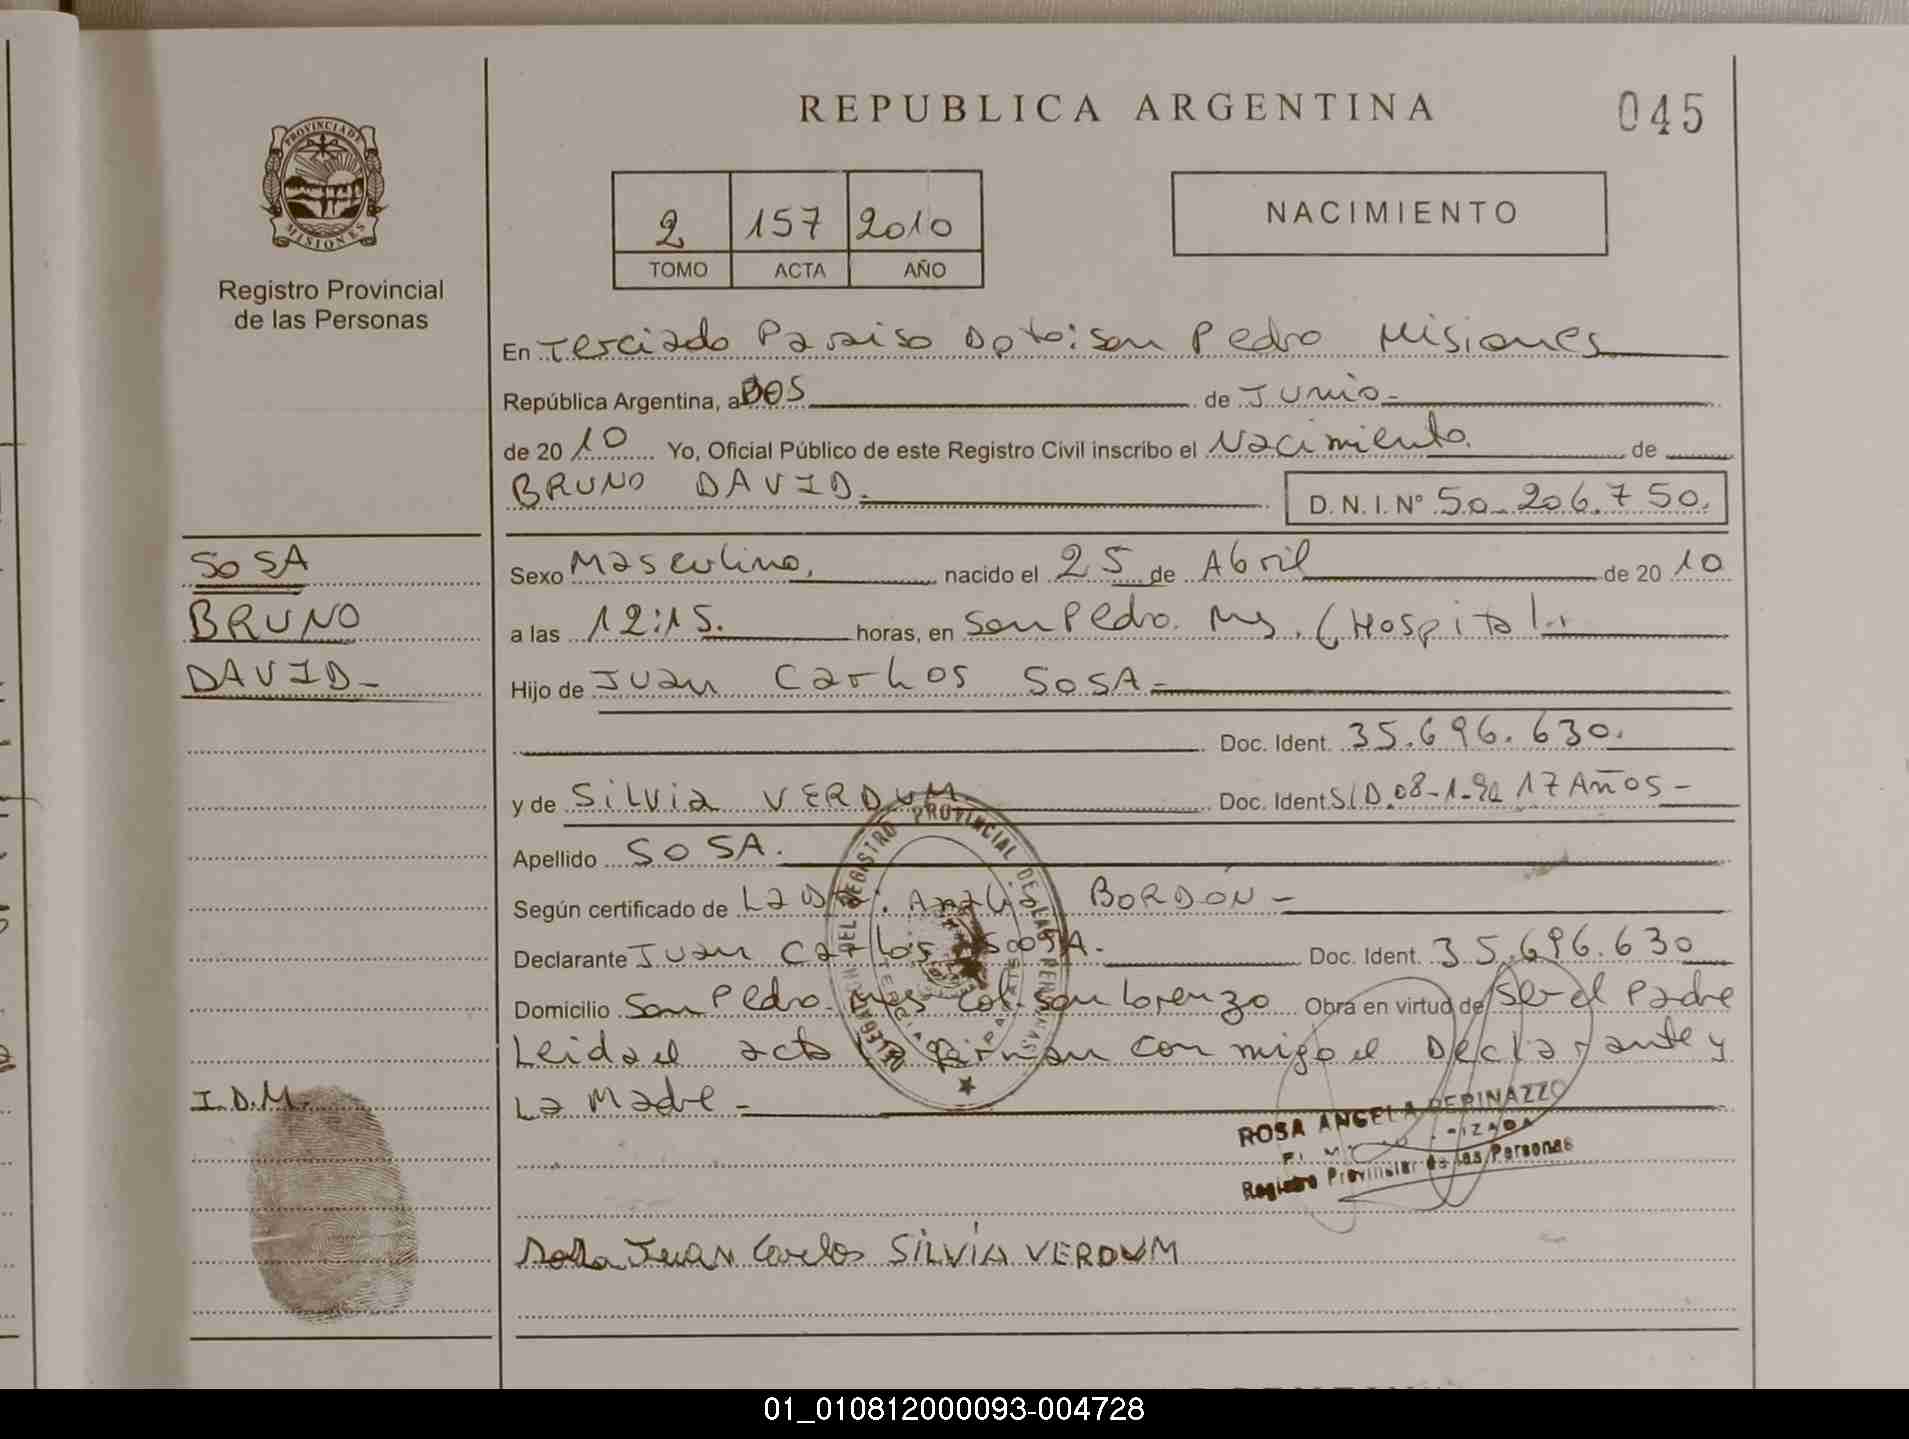 REPUBLICA ARGENTINA
045
PROVINCIA DE
MISIONES
Registro Provincial
de las Personas
2 157 2010
TOMO ACTA AÑO
NACIMIENTO
En Terciado Paraiso Dpto: San Pedro Misiones
República Argentina, a DOS de Junio -
de 2010 Yo, Oficial Público de este Registro Civil inscribo el Nacimiento. de
BRUNO DAVID. D. N. I. N° 50.206.750.
SOSA
BRUNO
DAVID -
Sexo Masculino, nacido el 25 de Abril de 2010
a las 12:15. horas, en San Pedro. Ms. (Hospital.
Hijo de Juan Carlos SOSA -
Doc. Ident. 35.696.630.
y de Silvia VERDUM. Doc. Ident. S/D. 08-1-92 17 Años -
Apellido SOSA.
Según certificado de La Dra. Analia BORDÓN -
Declarante Juan Carlos SOSA. Doc. Ident. 35.696.630
Domicilio San Pedro. Mns Col. San Lorenzo Obra en virtud de Ser el Padre
Leida el acta firman con migo el Declarante y
La Madre -
I.D.M.
DELEGACION DEL REGISTRO PROVINCIAL DE LAS PERSONAS
ROSA ANGELA PERINAZZO
Registro Provincial de las Personas
Sosa Juan Carlos SILVIA VERDUM
01_010812000093-004728